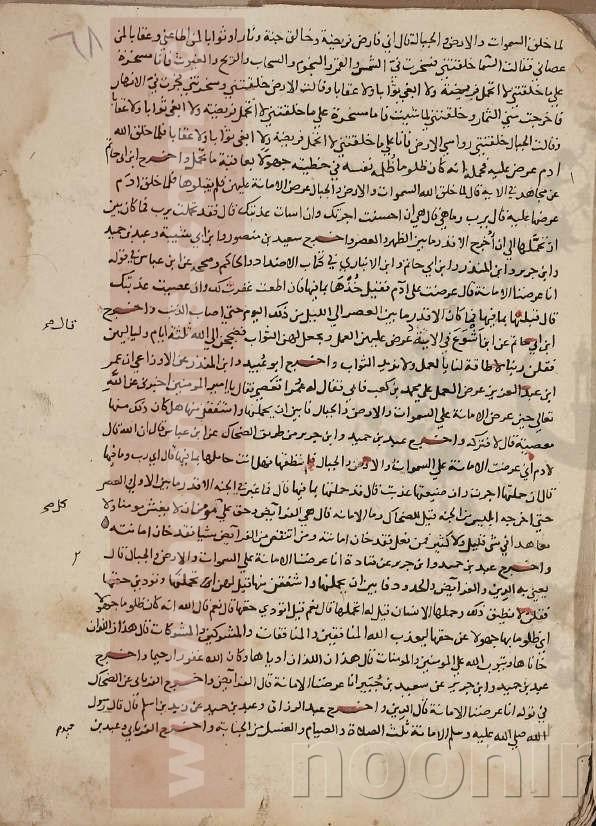 ٦٨
لما خلق السموات والارض والجبال قال اني فارض فريضة وخالق جنة ونارا وثوابا لمن اطاعني وعقابا لمن
عصاني فقالت السما خلقتني فسخرت في الشمس والقمر والنجوم والسحاب والريح والغيوث فانا مسخرة
علي ما خلقتني لا اتحمل فريضة ولا ابغي ثوابا ولا عقابا وقالت الارض خلقتني وسخرتني فجرت في الانهار
فاخرجت مني الثمار وخلقتني لما شيت فانا مسخرة علي ما خلقتني لا اتحمل فريضة ولا ابغي ثوابا ولا عقابا
وقالت الجبال خلقتني رواسي الارض فانا علي ما خلقتني لا اتحمل فريضة ولا ابغي ثوابا ولا عقابا فلما خلق الله
ادم عرض عليه فحمله انه كان ظلوما ظلمه نفسه في خطيته جهولا بعاقبة ما تحمل واخرج ابن ابي حاتم
عن مجاهد في الاية قال لما خلق الله السموات والارض والجبال عرض الامانة عليهن فلم يقبلوها فلما خلق ادم
عرضها عليه قال يرب وما هي قال هي ان احسنت اجرتك وان اسات عذبتك قال فقد تحملت يرب فما كان بين
ان تحملها الي ان اخرج الا قدر ما بين الظهر والعصر واخرج سعيد بن منصور وابن ابي شيبة وعبد بن حميد
وابن جرير وابن المنذر وابن ابي حاتم وابن الانباري في كتاب الاضداد والحاكم وصححه عن ابن عباس في قوله
انا عرضنا الامانة قال عرضت علي ادم فقيل خذها بما فيها فان اطعت غفرت لك وان عصيت عذبتك
قال قبلتها بما فيها فما كان الا قدر ما بين العصر الي الليل من ذلك اليوم حتي اصاب الذنب واخرج
ابن ابي حاتم عن ابن اشوع في الاية قال عرض عليهن العمل وجعل لهن الثواب فضججن الي الله ثلثة ايام ولياليهن
فقلن ربنا لا طاقة لنا بالعمل ولا نريد الثواب واخرج ابو عبيد وابن المنذر عن الاوزاعي ان عمر
ابن عبد العزيز عرض العمل علي محمد بن كعب فابي فقال له عمر اتعصي فقال يا امير المومنين اخبرني عن الله
تعالي حين عرض الامانة علي السموات والارض والجبال فابين ان يحملنها واشفقن منها هل كان ذلك منها
معصية قال لا فتركه واخرج عبد بن حميد وابن جرير من طريق الضحاك عن ابن عباس قال ان الله قال
لادم اني عرضت الامانة علي السموات والارض والجبال فلم تطقها فهل انت حاملها بما فيها قال اي رب وما فيها
قال ان حملتها اجرت وان ضيعتها عذبت قال قد حملتها بما فيها قال فما غبر في الجنة الا قدر ما بين الاولي والعصر
حتي اخرجه ابليس من الجنة قيل للضحاك وما الامانة قال هي الفرايض وحق علي كل مومن ان لا يغش مومنا ولا
معاهدا في شي قليل ولا كثير فمن فعل فقد خان امانته ومن انتقص من الفرايض شيا فقد خان امانته
واخرج عبد بن حميد وابن جرير عن قتادة انا عرضنا الامانة علي السموات والارض والجبال قال
يعني به الدين والفرايض والحدود فابين ان يحملنها واشفقن منها قيل لهن ان تحملنها وتودين حقها
فقلن لا نطيق ذلك وحملها الانسان قيل له اتحملها قال نعم قيل اتودي حقها قال نعم قال الله انه كان ظلوما جهولا
اي ظلوما بها جهولا عن حقها ليعذب الله المنافقين والمنافقات والمشركين والمشركات قال هذان اللذان
خاناها ويتوب الله علي المومنين والمومنات قال هذان اللذان ادياها وكان الله غفورا رحيما واخرج
عبد بن حميد وابن جرير عن سعيد بن جبير انا عرضنا الامانة قال الفرايض واخرج الفريابي عن الضحاك
في قوله انا عرضنا الامانة قال الدين واخرج عبد الرزاق وعبد بن حميد عن زيد بن اسلم قال قال رسول
الله صلي الله عليه وسلم الامانة ثلث الصلاة والصيام والغسل من الجنابة واخرج الفريابي وعبد بن
قال صح
كل صح
حميد
www.
noonin